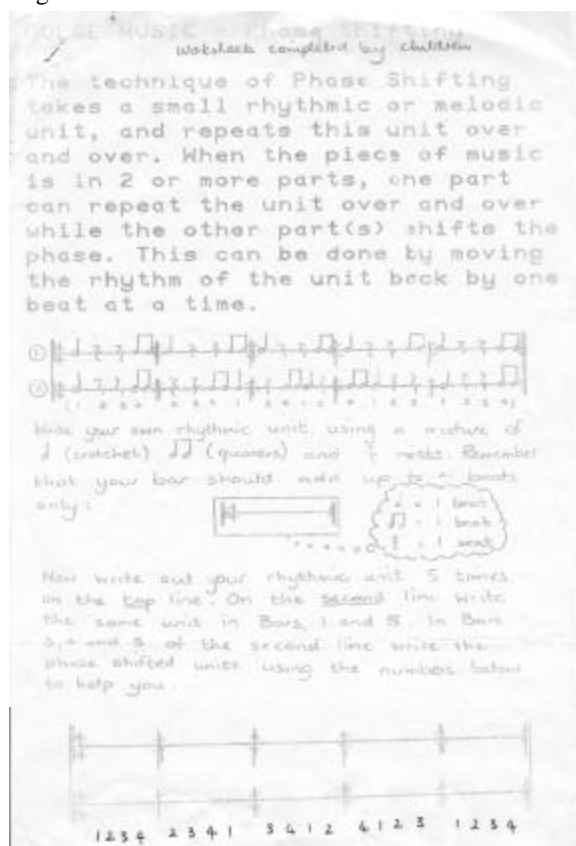 PULSE MUSIC - Phase Shifting
Worksheet completed by children
The technique of Phase Shifting
takes a small rhythmic or melodic
unit, and repeats this unit over
and over. When the piece of music
is in 2 or more parts, one part
can repeat the unit over and over
while the other part(s) shifts the
phase. This can be done by moving
the rhythm of the unit back by one
beat at a time.
(1 2 3 4 2 3 4 1 3 4 1 2 4 1 2 3 1 2 3 4)
Write your own rhythmic unit using a mixture of
(crotchets) (quavers) and rests. Remember
that your bar should add up to 4 beats
only:
= 1 beat
= 1 beat
= 1 beat
Now write out your rhythmic unit 5 times
on the top line. On the second line write
the same unit in Bars 1 and 5. In Bars
and of the second line write the
phase shifted units using the numbers below
to help you.
1 2 3 4 2 3 4 1 3 4 1 2 4 1 2 3 1 2 3 4